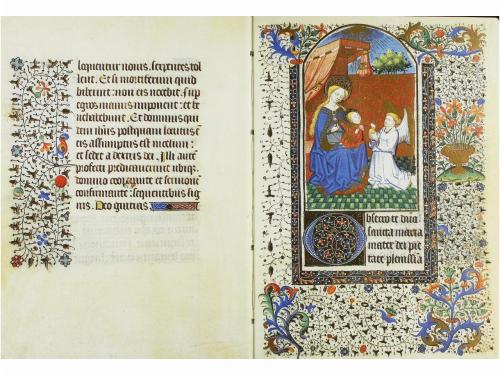 loquentur nouis. serpentes tol
lent. Et si mortiferum quid
biberint: non eis nocebit. Sup
egros manus imponent: et be
ne habebunt. Et dominus qui
dem ihesus postquam locutus
eis assumptus est in celum:
et sedet a dextris dei. Illi autem
profecti predicauerunt ubiqz
domino cooperante et sermonem
confirmante. sequentibus sig
nis. Deo gratias
Obsecro te dña
sancta maria
mater dei pie
tate plenissia